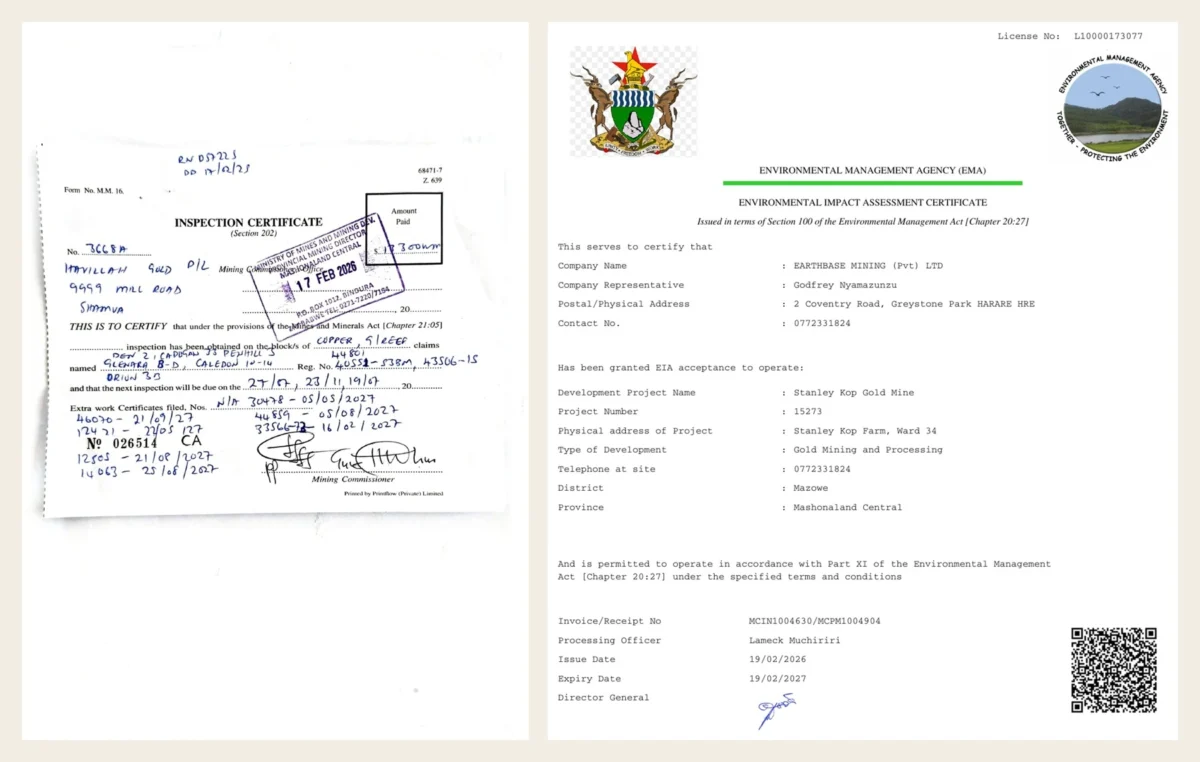 RN 057225
DD 17/02/25
68471-7
Z. 639
Form No. M.M. 16.
Amount
Paid
INSPECTION CERTIFICATE
(Section 202)
No. 3668A
HAVILLAH GOLD P/L
Mining Commissioner's Office
9999 MILL ROAD
SHAMVA
MINISTRY OF MINES AND MINING DEV.
PROVINCIAL MINING DIRECTOR
MASHONALAND CENTRAL
17 FEB 2026
P.O. BOX 1012, BINDURA
ZIMBABWE TEL: 0271-7220/7194
, 20
THIS IS TO CERTIFY that under the provisions of the Mines and Minerals Act [Chapter 21:05]
inspection has been obtained on the block/s of COPPER, G/REEF claims
DEN 2, CADOGAN 33 PENHILL 5
44801
named GLENARA 8-D, CALEDON 10-14 Reg. No. 40551-53BM, 43506-15
ORIUN 3B
and that the next inspection will be due on the 27/07, 23/11, 19/07, 20
Extra work Certificates filed, Nos. N/A 30478 - 05/05/2027
46070 - 21/09/27
44859 - 05/08/2027
12471 - 23/05/27
33566-72 16/02/2027
No 026514 CA
12505 - 21/08/2027
14063 - 25/08/2027
Mining Commissioner
Printed by Printflow (Private) Limited
License No: L10000173077
ENVIRONMENTAL MANAGEMENT AGENCY
TOGETHER - PROTECTING THE ENVIRONMENT
ENVIRONMENTAL MANAGEMENT AGENCY (EMA)
ENVIRONMENTAL IMPACT ASSESSMENT CERTIFICATE
Issued in terms of Section 100 of the Environmental Management Act [Chapter 20:27]
This serves to certify that
Company Name : EARTHBASE MINING (Pvt) LTD
Company Representative : Godfrey Nyamazunzu
Postal/Physical Address : 2 Coventry Road, Greystone Park HARARE HRE
Contact No. : 0772331824
Has been granted EIA acceptance to operate:
Development Project Name : Stanley Kop Gold Mine
Project Number : 15273
Physical address of Project : Stanley Kop Farm, Ward 34
Type of Development : Gold Mining and Processing
Telephone at site : 0772331824
District : Mazowe
Province : Mashonaland Central
And is permitted to operate in accordance with Part XI of the Environmental Management
Act [Chapter 20:27] under the specified terms and conditions
Invoice/Receipt No MCIN1004630/MCPM1004904
Processing Officer Lameck Muchiriri
Issue Date 19/02/2026
Expiry Date 19/02/2027
Director General